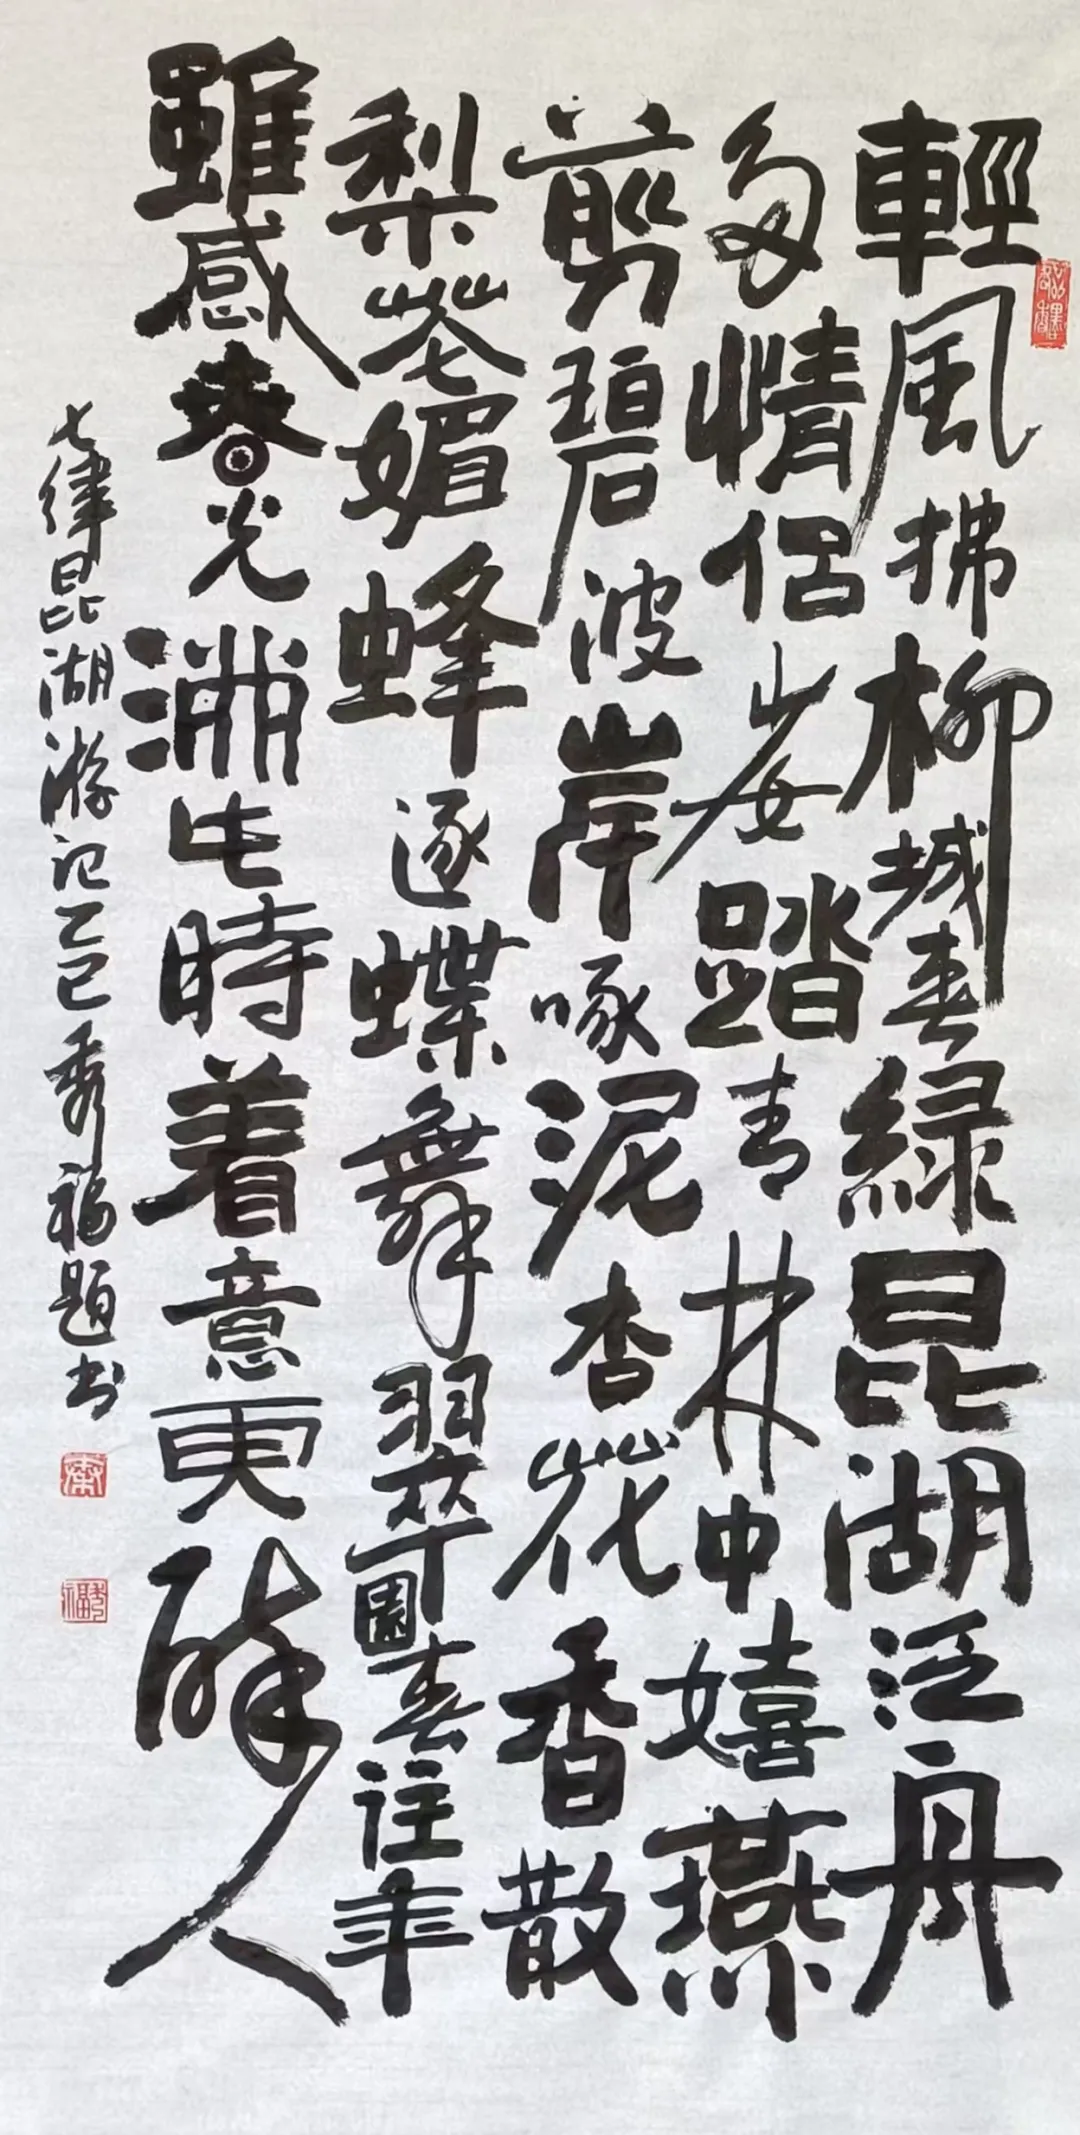 輕風拂柳城春綠昆湖泛舟
多情侣少女踏青林中嬉燕
剪碧波岸啄泥杏花香散
梨花媚蜂逐蝶舞翠園春往年
雖感春光滿此時着意更醉人
七律昆湖游记乙巳秀福題书
秀福